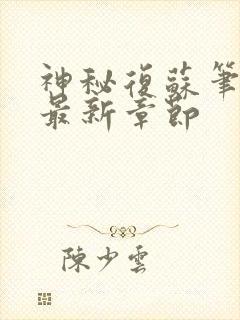 神秘復蘇筆
最新章節
陳少雲